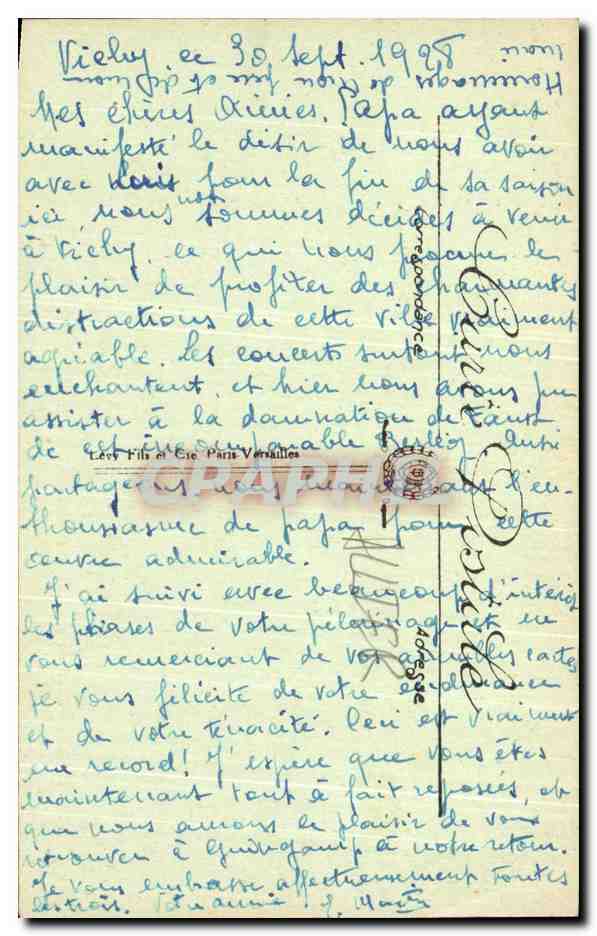 Vichy ce 30 sept. 1928
Hommages de
Mes chères Amies. Papa ayant
manifesté le désir de nous avoir
avec pour la fin de sa saison
ici, nous nous sommes décidés à venir
à Vichy, ce qui nous procure le
plaisir de profiter des charmantes
distractions de cette ville vraiment
agréable. Les concerts surtout nous
enchantent, et hier nous avons pu
assister à la damnation de Faust
de cet incomparable Berlioz. Aussi
partageons nous maintenant l'en-
thousiasme de papa pour cette
œuvre admirable.
J'ai suivi avec beaucoup d'intérêt
les phases de votre pélerinage et en
vous remerciant de vos cartes
je vous félicite de votre endurance
et de votre ténacité. Ceci est vraiment
un record! J'espère que vous êtes
maintenant tout à fait reposées, et
que nous aurons le plaisir de vous
retrouver à Guingamp à notre retour.
Je vous embrasse affectueusement toutes
les trois. Votre amie
Carte Postale
Correspondance
Adresse
Lévy Fils et Cie Paris-Versailles
CPARHAMA
ALLIER